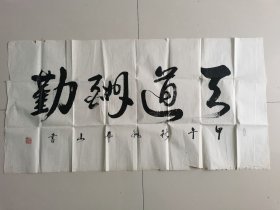 天道酬勤
甲午秋山書